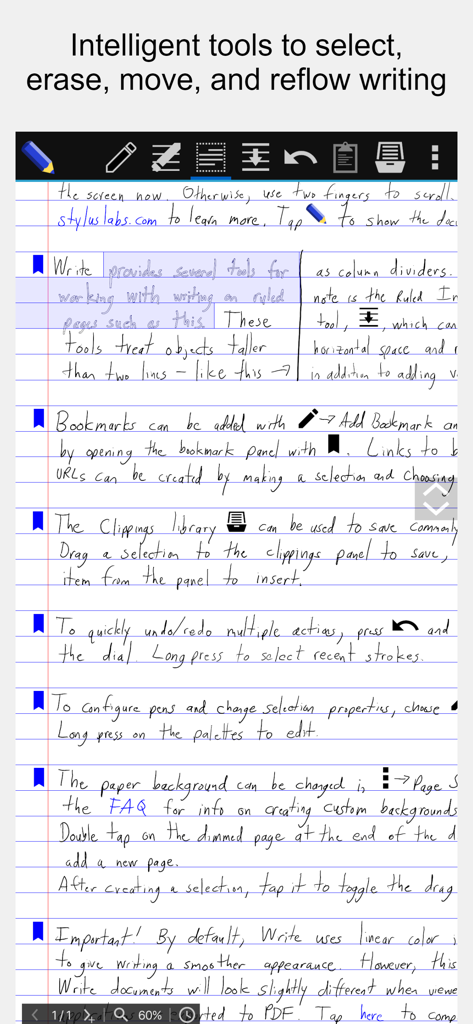 Intelligent tools to select,
erase, move, and reflow writing
the screen now. Otherwise, use two fingers to scroll.
styluslabs.com to learn more. Tap to show the doc
Write provides several tools for
working with writing on ruled
pages such as this. These
tools treat objects taller
than two lines – like this →
as column dividers.
note is the Ruled In
tool, , which can
horizontal space and
in addition to adding v
Bookmarks can be added with → Add Bookmark an
by opening the bookmark panel with . Links to b
URLs can be created by making a selection and choosing
The Clippings library can be used to save commonly
Drag a selection to the clippings panel to save,
item from the panel to insert.
To quickly undo/redo multiple actions, press and
the dial. Long press to select recent strokes.
To configure pens and change selection properties, choose
Long press on the palettes to edit.
The paper background can be changed in → Page S
the FAQ for info on creating custom backgrounds
Double tap on the dimmed page at the end of the d
add a new page.
After creating a selection, tap it to toggle the drag
Important! By default, Write uses linear color i
to give writing a smoother appearance. However, this
Write documents will look slightly different when viewe
rted to PDF. Tap here to comp
1/1 60%